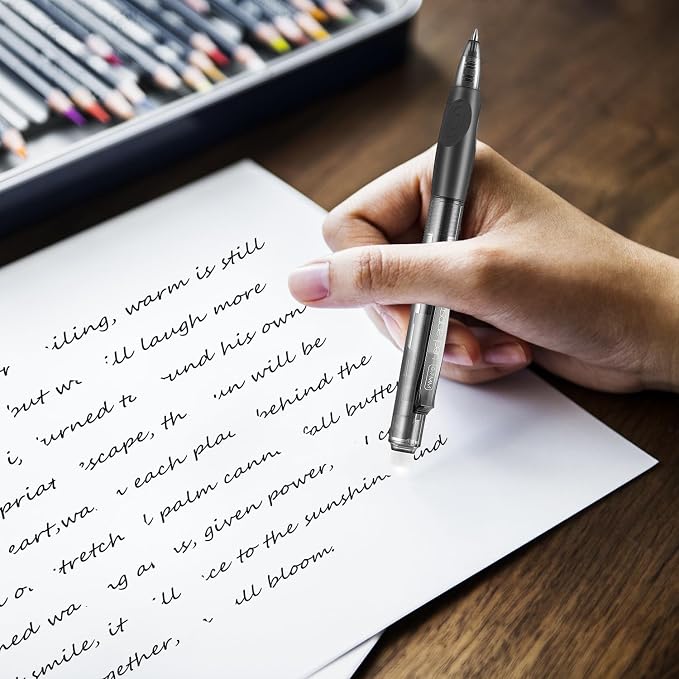 iling, warm is still
but w ll laugh more
i, urned to und his own
priat scape, th un will be
eart,wa each plac behind the
tretch palm cann all butte
ned wa ng a s, given power, c
smile, it ll ce to the sunshin nd
ogether, ll bloom.